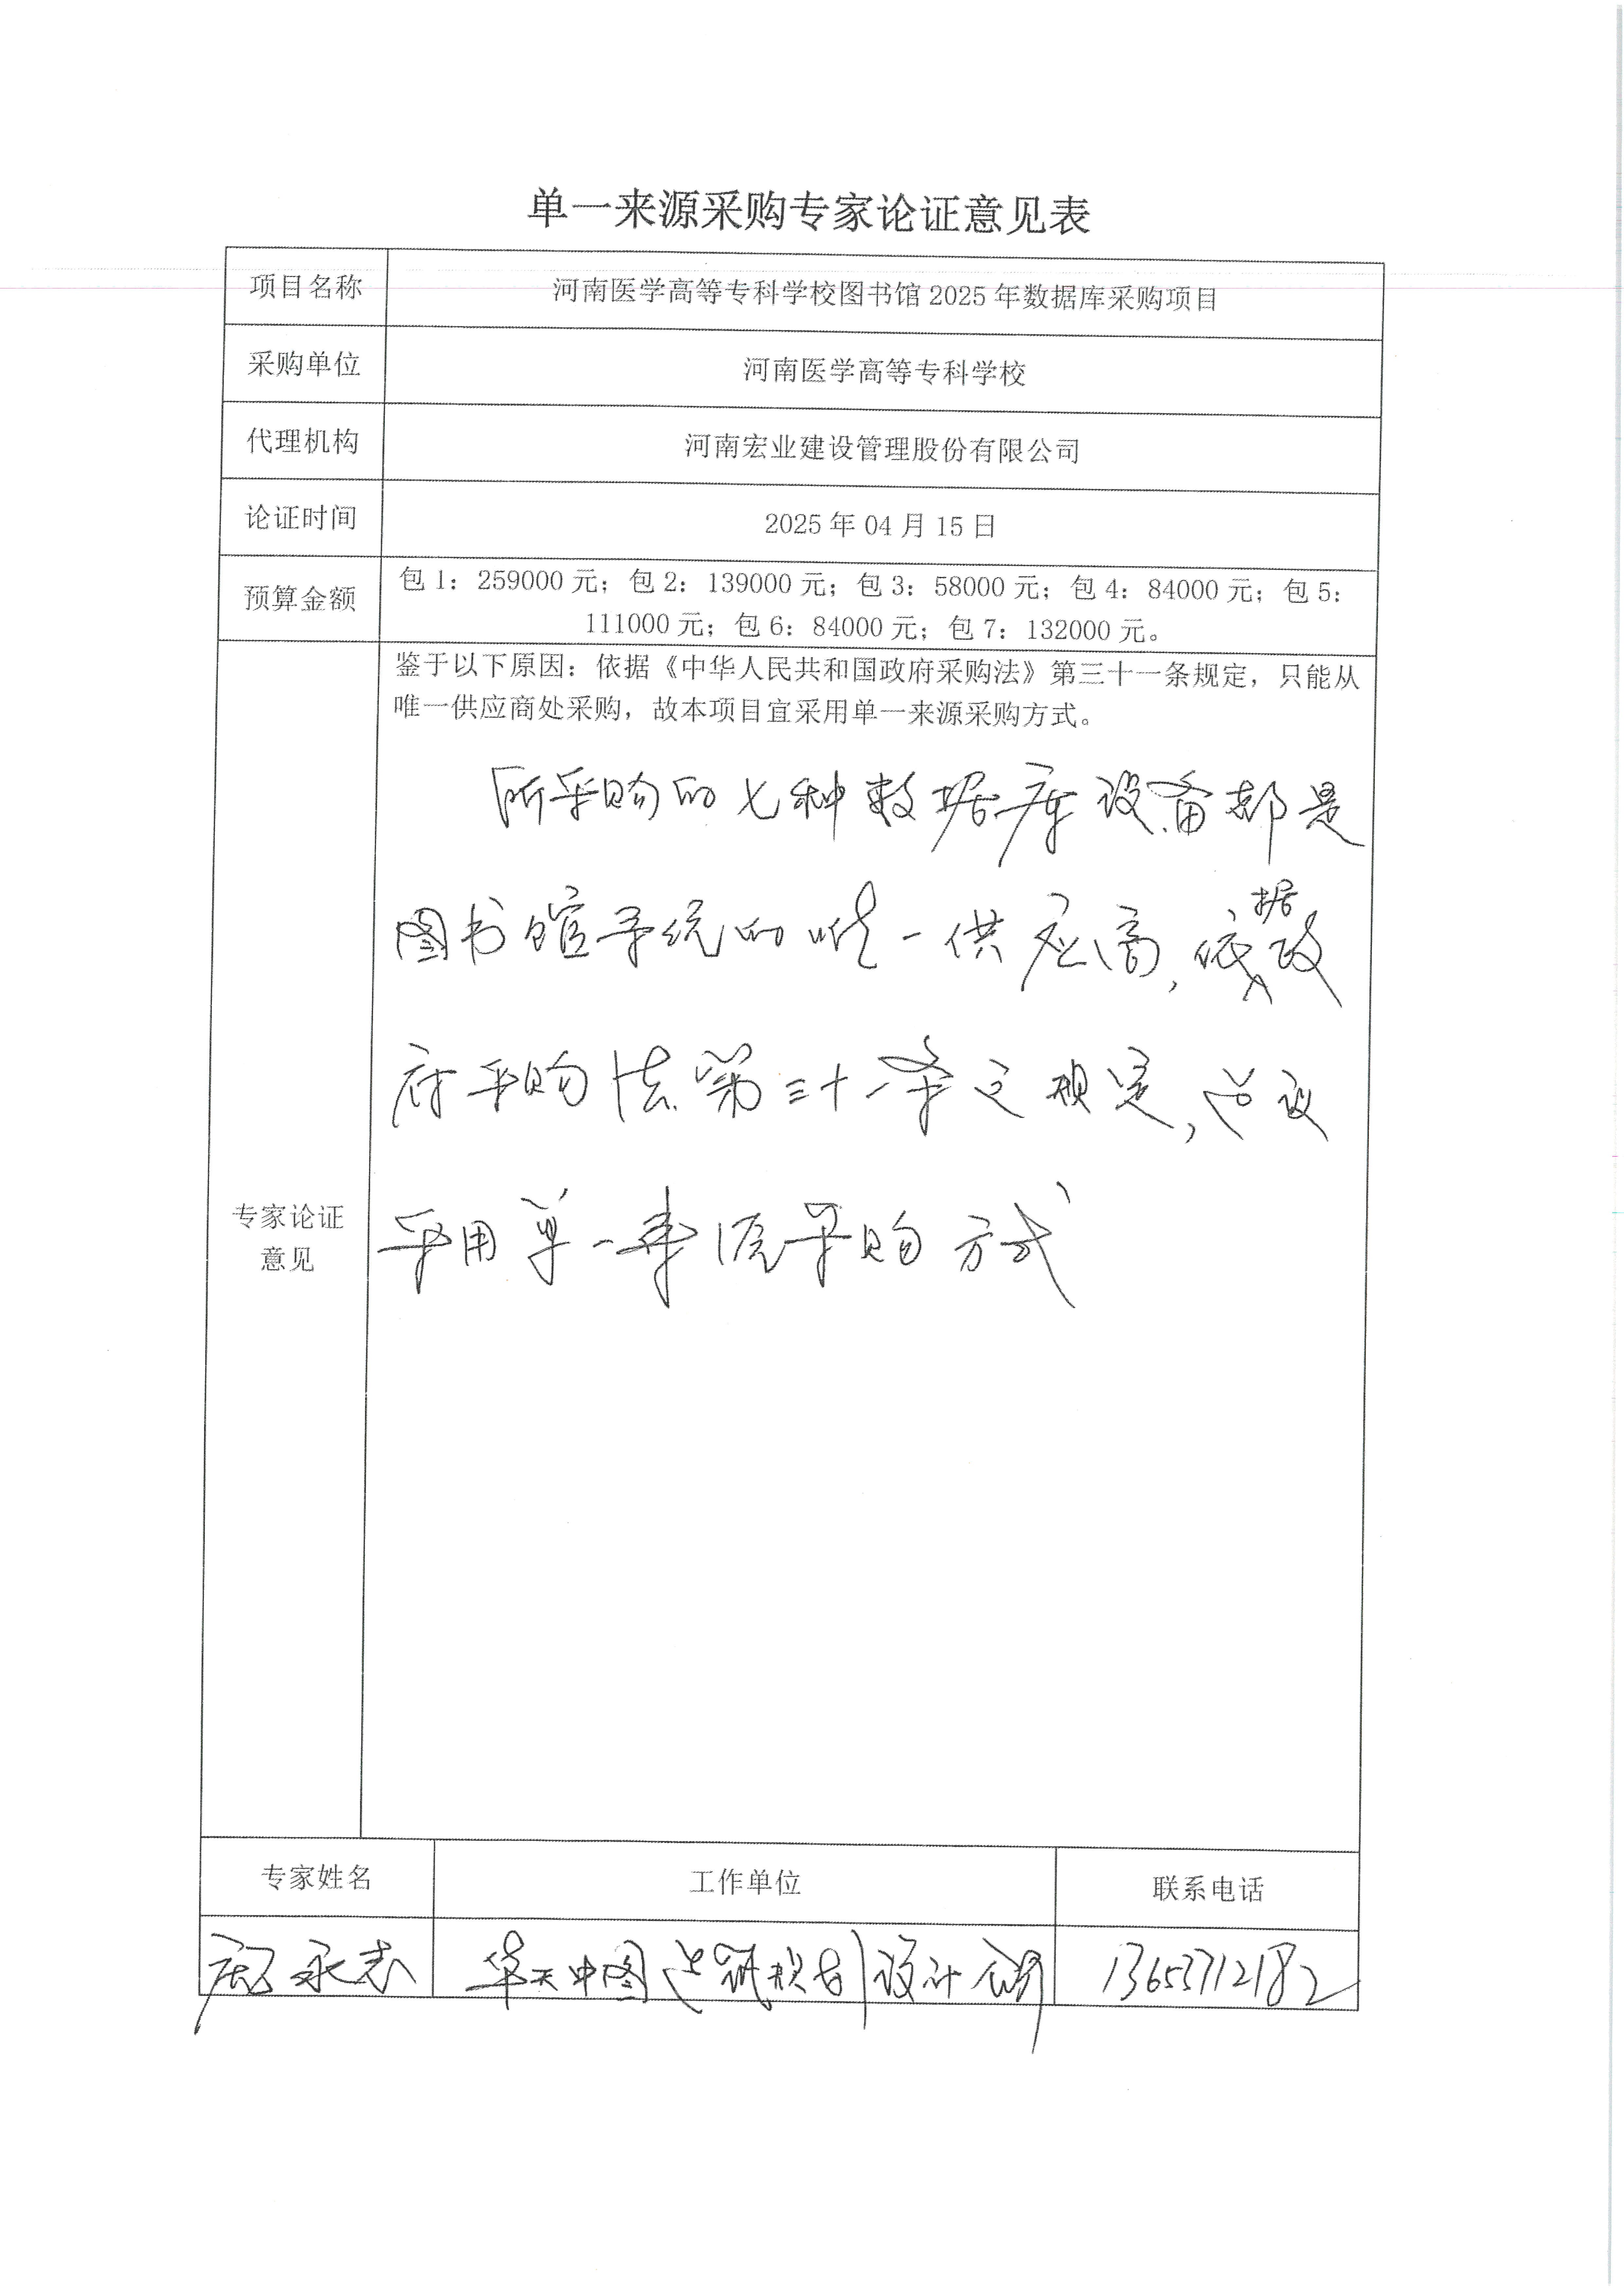 单一来源采购专家论证意见表
项目名称 河南医学高等专科学校图书馆 2025 年数据库采购项目
采购单位 河南医学高等专科学校
代理机构 河南宏业建设管理股份有限公司
论证时间 2025 年 04 月 15 日
预算金额 包 1：259000 元；包 2：139000 元；包 3：58000 元；包 4：84000 元；包 5：
111000 元；包 6：84000 元；包 7：132000 元。
鉴于以下原因：依据《中华人民共和国政府采购法》第三十一条规定，只能从
唯一供应商处采购，故本项目宜采用单一来源采购方式。
所采购的七种数据库设备都是
图书馆系统的唯一供应商，依据政
府采购法第三十一条之规定，建议
采用单一来源采购方式
专家论证
意见
专家姓名 工作单位 联系电话
永志 华天中图建筑规划设计 13653712182